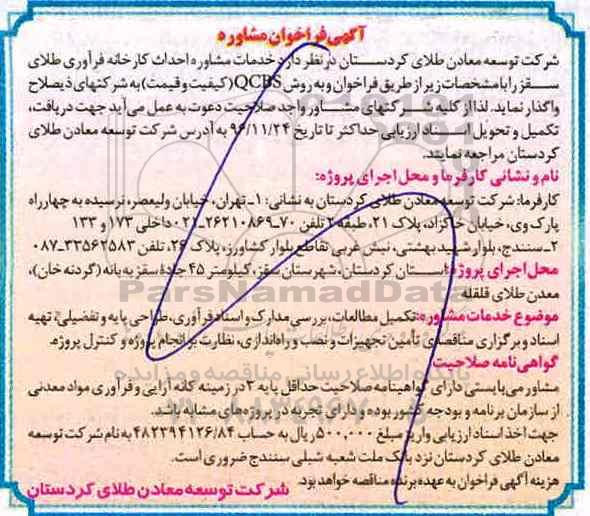 آگهی فراخوان مشاوره
شرکت توسعه معادن طلای کردستان در نظر دارد خدمات مشاوره احداث کارخانه فرآوری طلای
سقز را با مشخصات زیر از طریق فراخوان و به روش QCBS(کیفیت و قیمت) به شرکتهای ذیصلاح
واگذار نماید. لذا از کلیه شرکتهای مشاور واجد صلاحیت دعوت به عمل می‌آید جهت دریافت،
تکمیل و تحویل اسناد ارزیابی حداکثر تا تاریخ ۹۶/۱۱/۲۴ به آدرس شرکت توسعه معادن طلای
کردستان مراجعه نمایند.
نام و نشانی کارفرما و محل اجرای پروژه:
کارفرما: شرکت توسعه معادن طلای کردستان به نشانی: ۱ـ تهران، خیابان ولیعصر، نرسیده به چهارراه
پارک وی، خیابان خاکزاد، پلاک ۲۱، طبقه ۲ تلفن ۷۰ـ۲۶۲۱۰۸۶۹ـ۰۲۱ داخلی ۱۷۳ و ۱۳۳
۲ـ سنندج، بلوار شهید بهشتی، نبش غربی تقاطع بلوار کشاورز، پلاک ۲۶، تلفن ۳۳۵۶۲۵۸۳ـ۰۸۷
محل اجرای پروژه: استان کردستان، شهرستان سقز، کیلومتر ۴۵ جاده سقز به بانه (گردنه خان)،
معدن طلای قلقله
موضوع خدمات مشاوره: تکمیل مطالعات، بررسی مدارک و اسناد فرآوری، طراحی پایه و تفضیلی، تهیه
اسناد و برگزاری مناقصه‌ی تأمین تجهیزات و نصب و راه‌اندازی، نظارت بر انجام پروژه و کنترل پروژه.
گواهی نامه صلاحیت:
مشاور می‌بایستی دارای گواهینامه صلاحیت حداقل پایه ۳ در زمینه کانه آرایی و فرآوری مواد معدنی
از سازمان برنامه و بودجه کشور بوده و دارای تجربه در پروژه‌های مشابه باشد.
جهت اخذ اسناد ارزیابی واریز مبلغ ۵۰۰,۰۰۰ ریال به حساب ۴۸۲۳۹۴۱۲۶/۸۴ به نام شرکت توسعه
معادن طلای کردستان نزد بانک ملت شعبه شبلی سنندج ضروری است.
هزینه آگهی فراخوان به عهده برنده مناقصه خواهد بود.
شرکت توسعه معادن طلای کردستان
ParsNamadData
پایگاه اطلاع رسانی مناقصه و مزایده